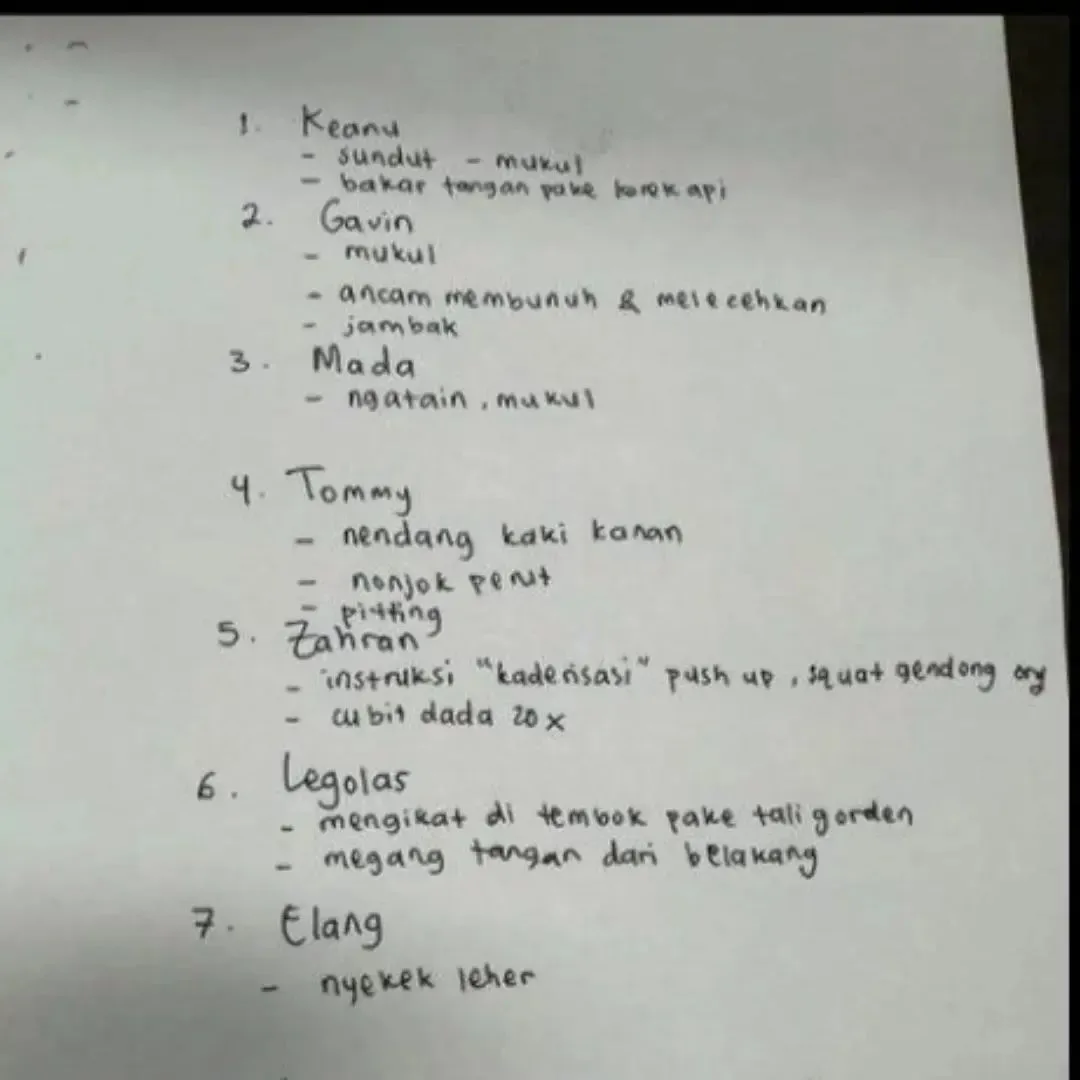 1. Keanu
- sundut - mukul
- bakar tangan pake korek api
2. Gavin
- mukul
- ancam membunuh & melecehkan
- jambak
3. Mada
- ngatain, mukul
4. Tommy
- nendang kaki kanan
- nonjok perut
- pitting
5. Zahran
- instruksi "kaderisasi" push up, squat gendong org
- cubit dada 20x
6. Legolas
- mengikat di tembok pake tali gorden
- megang tangan dari belakang
7. Elang
- nyekek leher